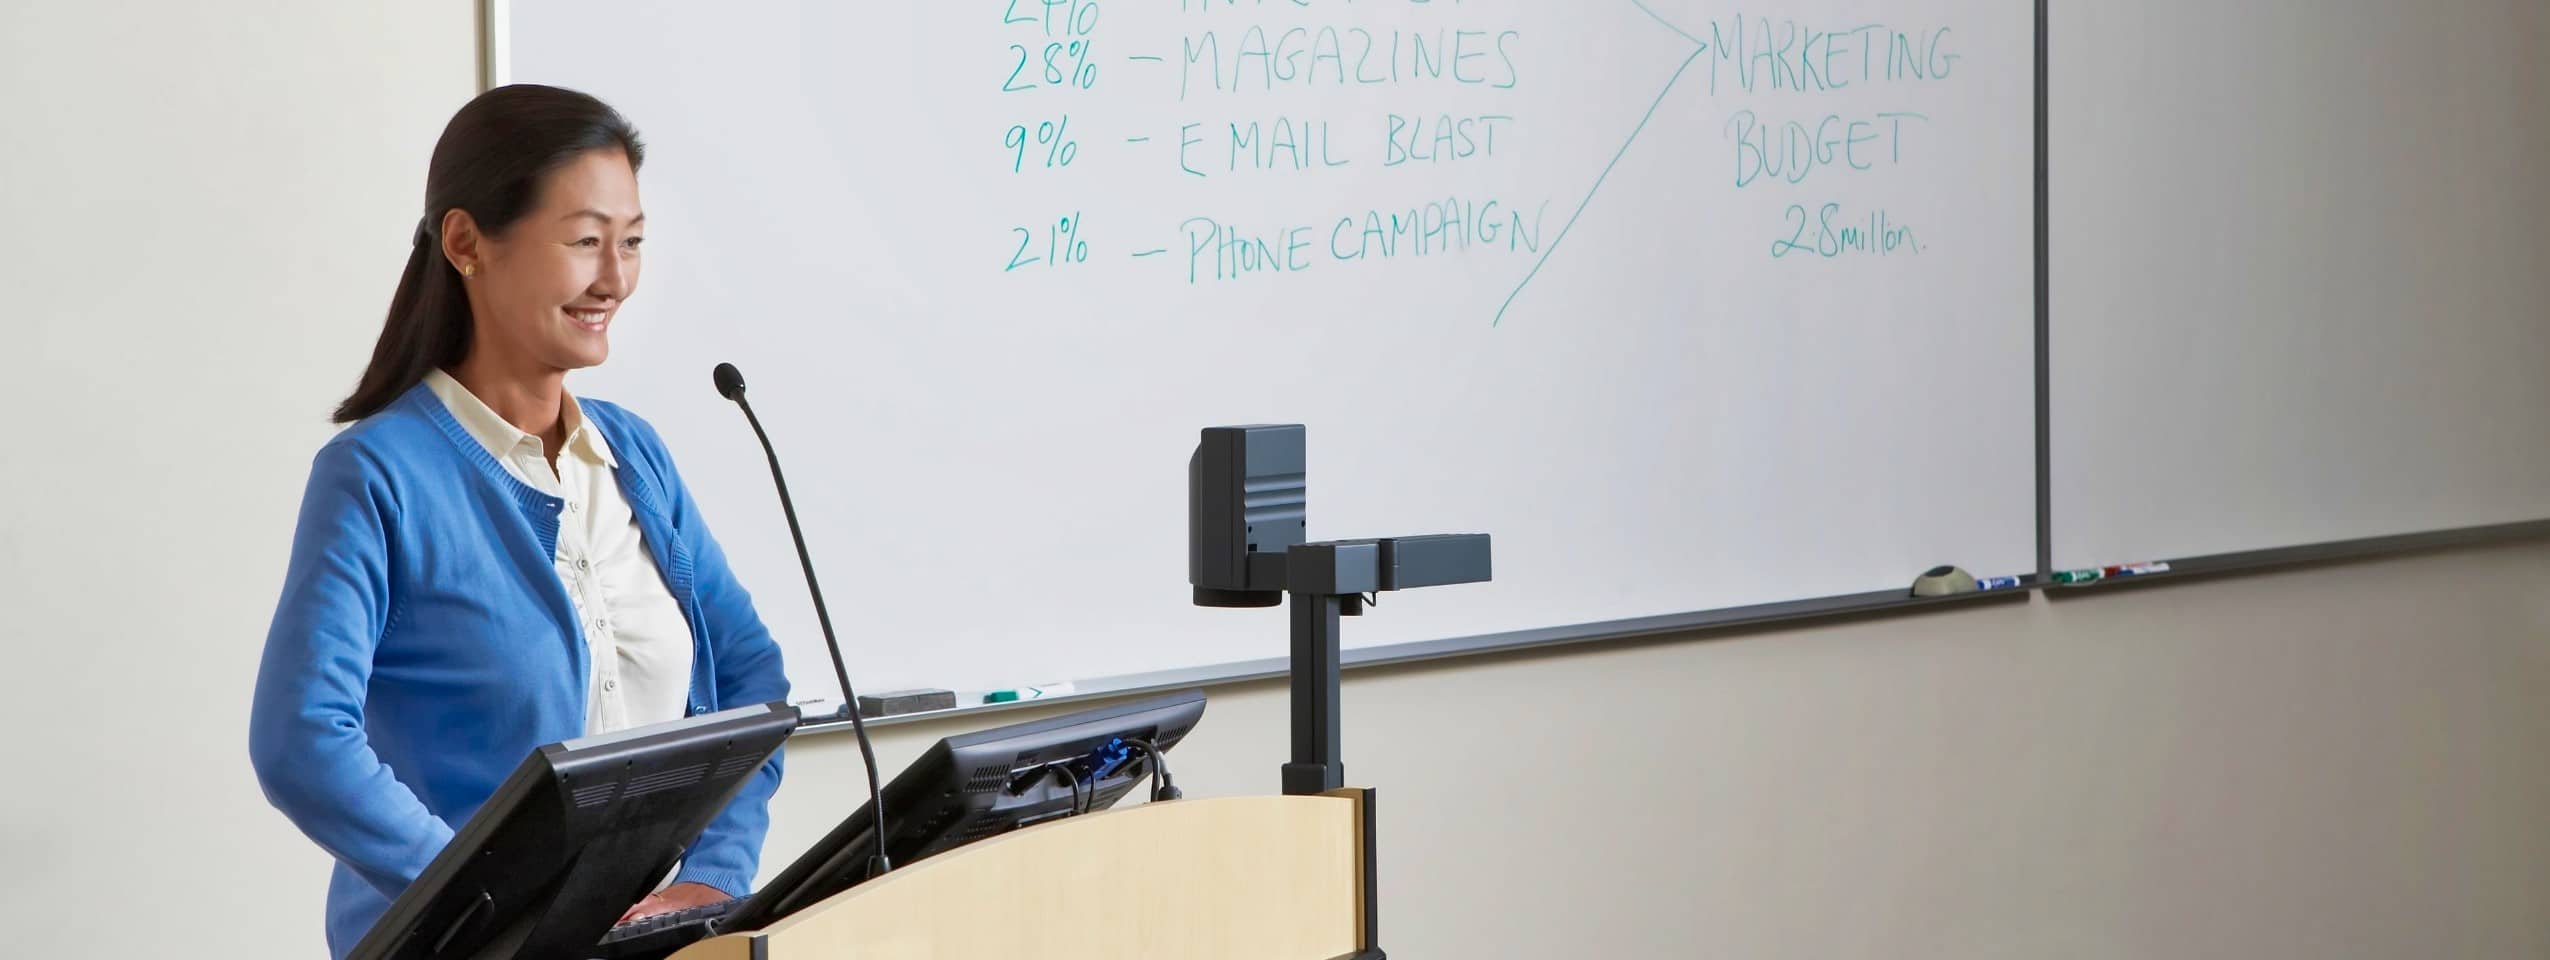 24%
28% - MAGAZINES
9% - EMAIL BLAST
21% - PHONE CAMPAIGN
MARKETING
BUDGET
2.8 million.